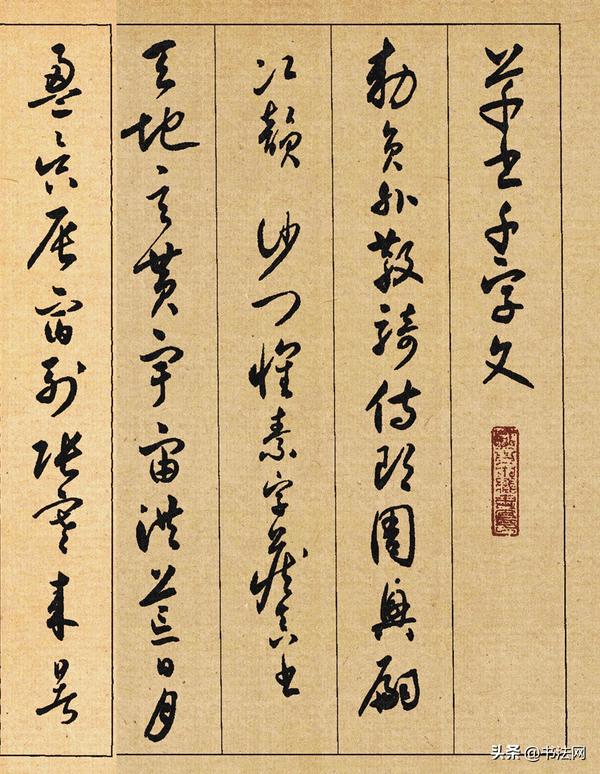 草書千字文
勅員外散騎侍郎周興嗣
次韻 沙門懷素字藏真書
天地玄黃宇宙洪荒日月
盈昃辰宿列張寒來暑
头条 @书法网